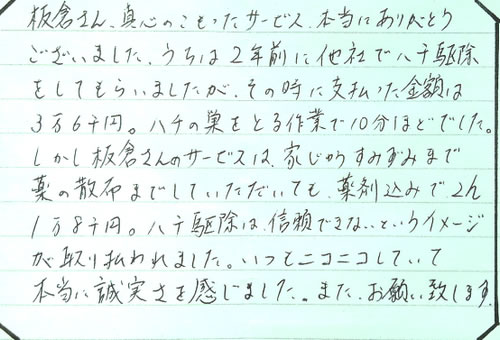 板倉さん、真心のこもったサービス、本当にありがとう
ございました。うちは2年前に他社でハチ駆除
をしてもらいましたが、その時に支払った金額は
3万6千円。ハチの巣をとる作業で10分ほどでした。
しかし板倉さんのサービスは、家じゅうすみずみまで
薬の散布までしていただいても、薬剤込みで
1万8千円。ハチ駆除は、信頼できないというイメージ
が取り払われました。いつもニコニコしていて
本当に誠実さを感じました。また、お願い致します。